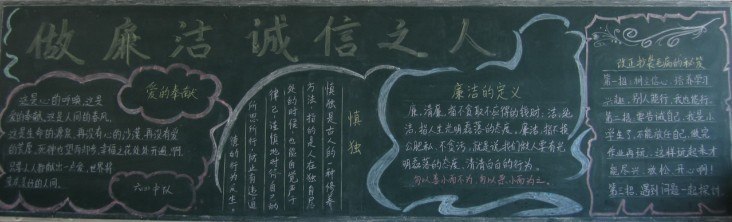 做廉洁诚信之人
爱的奉献
这是心的呼唤,这是
爱的奉献,这是人间的春风,
这是生命的源泉,再没有心的沙漠,再没有爱
的荒原,死神也望而却步,幸福之花处处开遍,啊,
只要人人都献出一点爱,世界将
变成美好的人间。
六(2)中队
慎独
慎独是古人的一种修养
方法,指的是人在独自思
处的时候,也能自觉严于
律己,谨慎地对待自己的
所思所行,防止有违道
德的
廉洁的定义
廉,清廉,指不贪取不应得的钱财;洁,洁
洁,指人生光明磊落的态度。廉洁,指不损
公肥私,不贪污,就是说我们做人要有光
明磊落的态度,清清白白的行为。
勿以恶小而为,勿以善小而为之。
改正抄袭毛病的秘笈
第一招:树立信心,培养学习
兴趣,别人能行,我也能行。
第二招:要告诫自己:我是小
学生了,不能放任自己,做完
作业再玩,这样玩起来才
能尽兴、放松、开心啊!
第三招:遇到问题一起探讨。